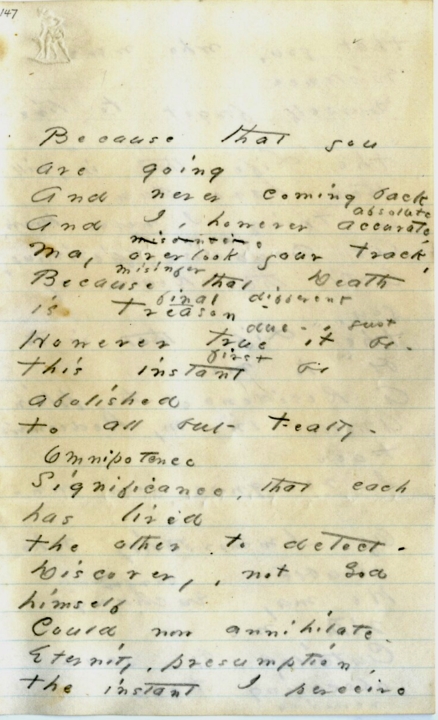 147
Because that you
are going
And never coming back
And I, however absolute
accurate
misconceive
May overlook your Track
misinfer
Because that Death
is final different
Treason
However true it be -
due - just
This instant be
first
abolished
To all but Fealty -
Omnipotence
Significance, that each
has lived
The other to detect -
Discovery, not God
himself
Could now annihilate
Eternity, Presumption
The instant I perceive